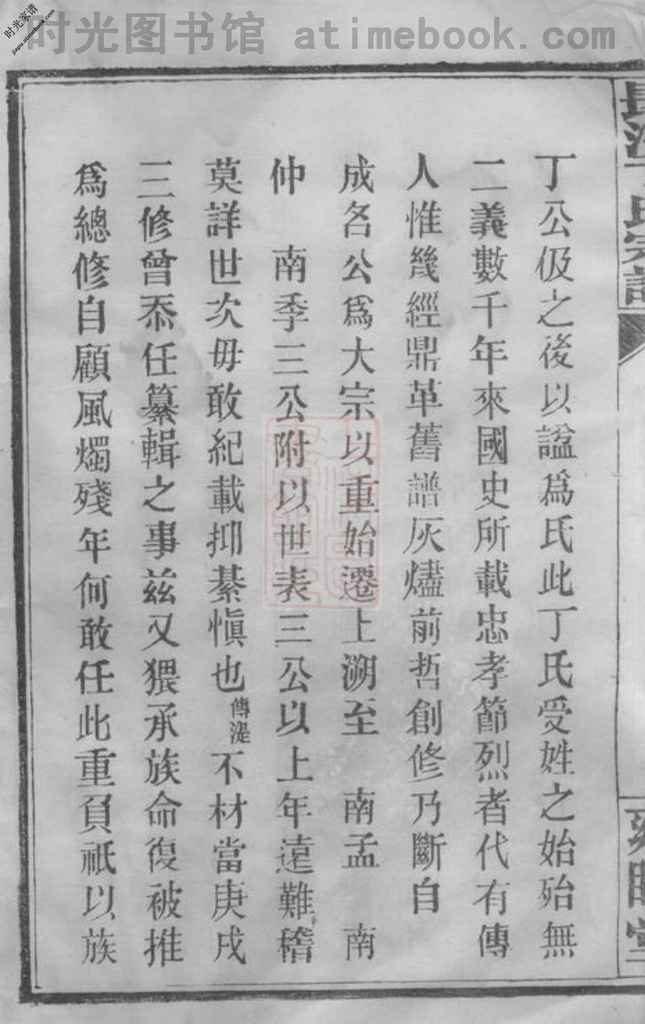 时光图书馆 atimebook.com
时光家谱
丁氏宗譜
丁公伋之後以諡爲氏此丁氏受姓之始殆無
二義數千年來國史所載忠孝節烈者代有傳
人惟幾經鼎革舊譜灰燼前哲創修乃斷自
成名公爲大宗以重始遷上溯至 南孟 南
仲 南季三公附以世表三公以上年遠難稽
莫詳世次毋敢紀載抑綦慎也傳湜不材當庚戌
三修曾忝任纂輯之事兹又猥承族命復被推
爲總修自顧風燭殘年何敢任此重負祇以族